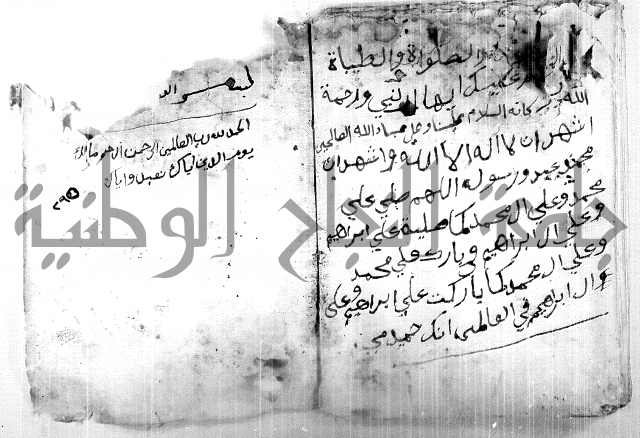 الصلواة والطيباة
عليك ايها النبي ورحمة
الله وبركاته السلام علينا وعلى عباد الله الصالحين
اشهد ان لا اله الا الله واشهد ان
محمد عبده ورسوله اللهم صلي علي
محمد وعلي ال محمد كما صلية علي ابراهيم
وعلي ال ابراهيم وبارك علي محمد
وعلي ال محمد كما باركت علي ابراهيم وعلي
وال ابراهيم في العالمين انك حميد مجيد
بسم الله
الحمد لله رب العالمين الرحمن الرحيم مالك
يوم الدين اياك نعبد واياك
جامعة النجاح الوطنية